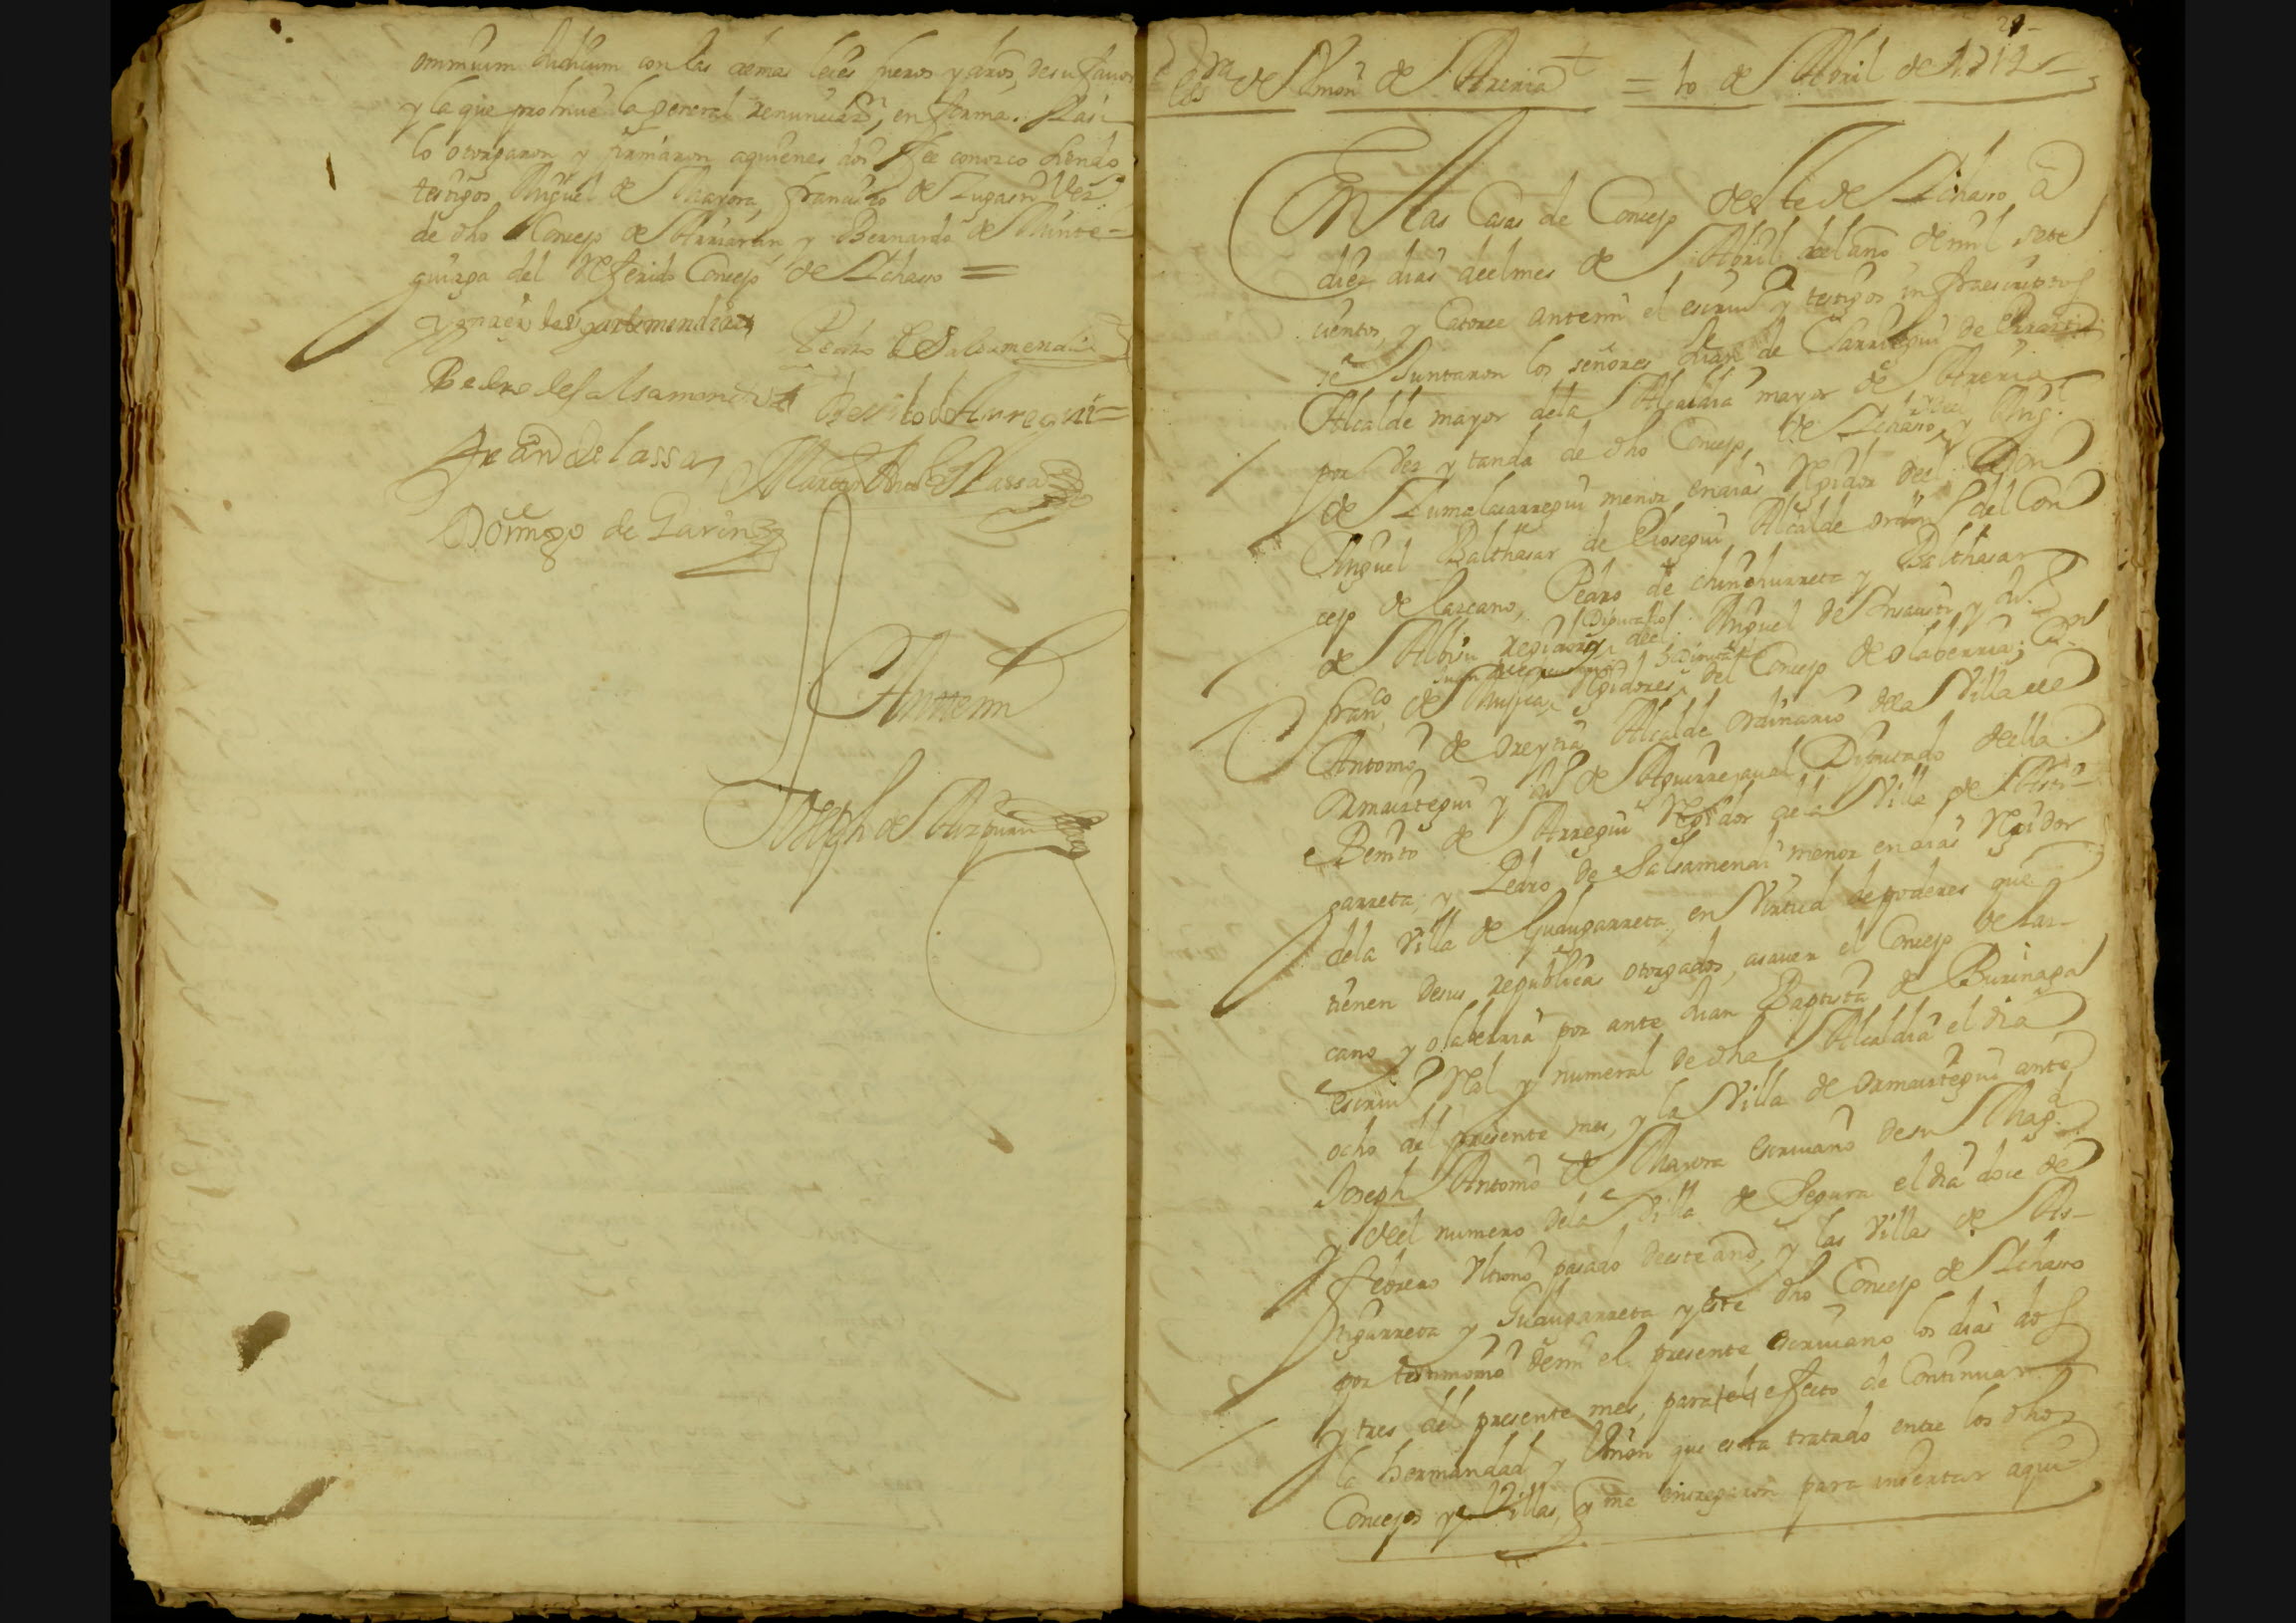 omnium with las demas leies fueros y dros, de su favor
y la que prohive la general renunciaon, en forma. Y asi
lo otorgaron y firmaron aquienes doi fee conozco siendo
testigos Miguel de Mayora, francisco de Lugasti Vezs
de dho Concejo de Arriaran y Bernardo de Minte=
guiaga del referido Concejo de Ichaso =
Pedro de Salsamendi
Pedro de Salsamendi
Benito de Aurregui=
Juan de lassa
Martin de Lassa
Domingo de Garin
Antemi
Joseph de Aizpuru
29
Essra de Union de Areria = 10 de Abril de 1714
En las Casas de Concejo deste de Ichasso, a
diez dias deel mes de Abril del año de mil sete
cientos, y Catorce antemi el escriuo y testigos infraescriptos
se Juntaron los señores Juan de Sarriegui de Erraizti
Alcalde mayor dela Alcaldia mayor de Areria
por Vez y tanda de dho Concejo, de Ichasso, y Migl
de Zumalacarregui menor en dias Regidor del, Don
Miguel Balthasar de Elosegui Alcalde ordino del Con
cejo de Lazcano, Pedro de chinchurreta y Balthasar
de Albisu regidores Diputados del, Miguel de Insausti y
franco de Mujica, Regidores del Concejo de olaberria; Dn
Antonio de Oreytia Alcalde ordinario dela Villa de
Ormaiztegui y de Aguirrezaual Diputado della
Benito de Arregui Regidor dela Villa de Asti=
garreta, y Pedro de Salsamendi menor en dias Regidor
dela Villa de Gudugarreta, en Virtud de poderes que
tienen desus republicas otorgados, asauer el Concejo de Laz=
cano y olaberria por ante Juan Baptista de Burinaga
escriuo Rel y numeral de dha Alcaldia el dia
ocho del presente mes, y la Villa de Ormaiztegui ante
Joseph Antonio de Mayora escriuano de su Magd
y deel numero dela Villa de Segura el dia doce de
febrero Vltimo pasado deeste año, y las Villas de As=
tigarreta y Gudugarreta y este dho Concejo de Ichasso
por testimonio demi el presente escriuano los dias dos
y tres del presente mes, para el efecto de Continuar
la hermandad y Union que esta tratado entre los dhos
Concejos y Villas, y me entregaron para insertar aqui